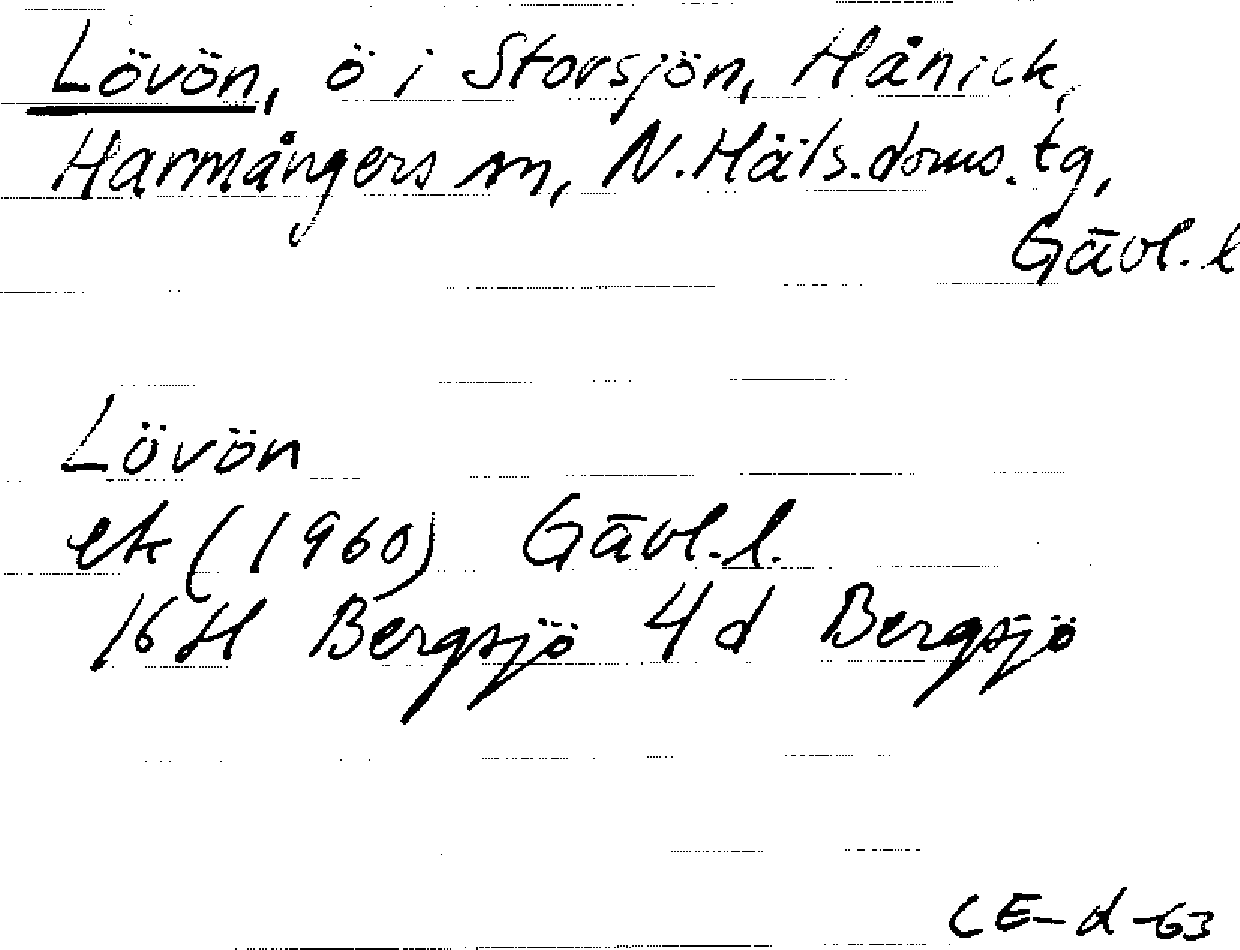 Lövön, ö i Storsjön, Hånick,
Harmångers sn, N.Häls.doms.tg,
Gävl.l
Lövön
ek (1960) Gävl.l.
16H Bergsjö 4d Bergsjö
CE-d-63